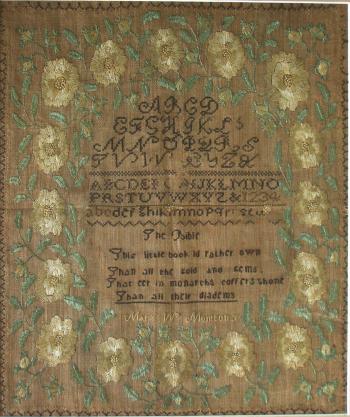 ABCD
EFGHIKL
MNOPQRS
TVW XYZ&
ABCDEF HIJKLMNO
PRSTUVWXYZ&1234
abcdef hiklmnopqrstu
The Bible
This little book id rather own
Than all the gold and gems
That eer in monarchs coffers shone
Than all their diadems
Mary